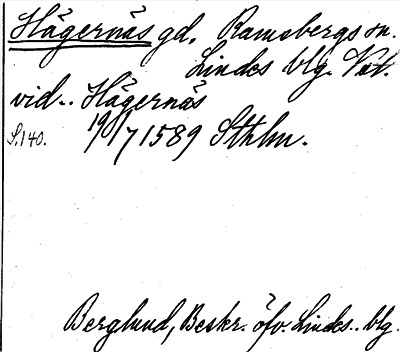 Hägernäs gd, Ramsbergs sn.
Lindes blg. Vstm.
vid.. Hägernäs
S. 140. 19/7 1589 Sthlm.
Berglund, Beskr. öfv. Lindes.. blg.